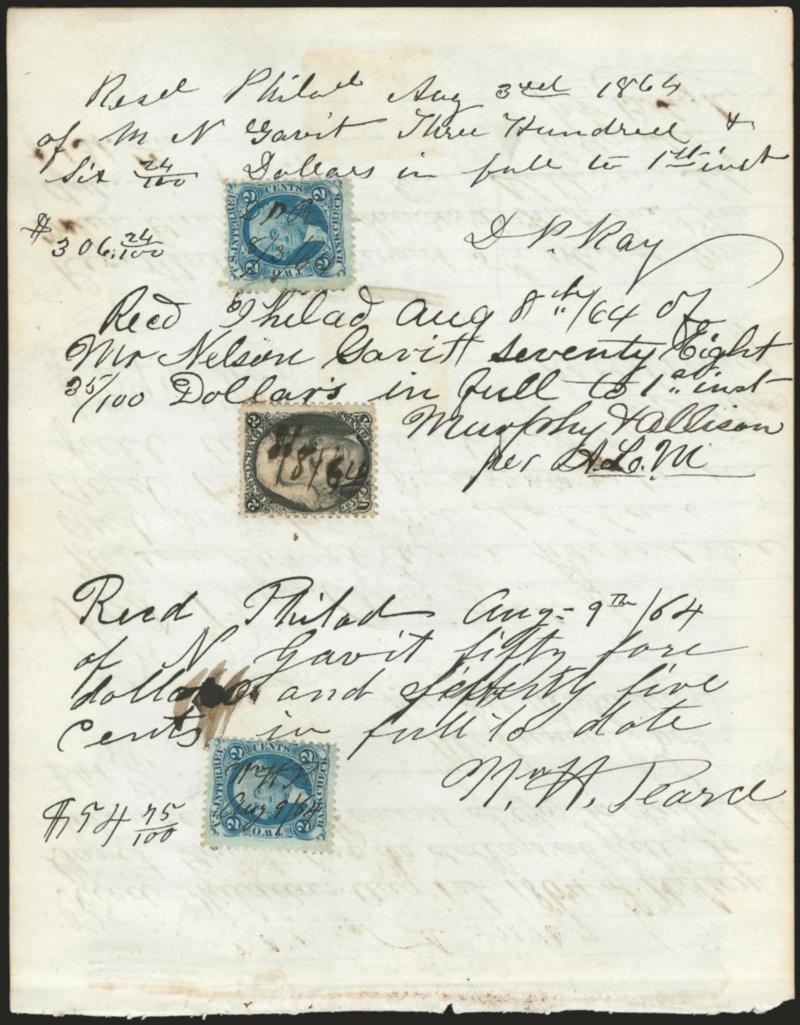 Recd Philad Aug 3rd 1864
of M N Gavit Three Hundred &
Six 24/100 Dollars in full to 1st inst
$306.24/100
D P. Ray
U.S. INTER REV.
2 CENTS 2
BANK CHECK
TWO
Recd Philad Aug 8th/64 of
Mr Nelson Gavit Seventy Eight
35/100 Dollars in full to 1st inst
Murphy & Allison
per A.L.M
2 2
8/8/64
Recd Philad Aug- 9th/64
of N Gavit fifty fore
dollars and seventy five
cents in full to date
Wm H. Pearce
$54 75/100
U.S. INTER REV.
2 CENTS 2
BANK CHECK
Aug 9/64
TWO